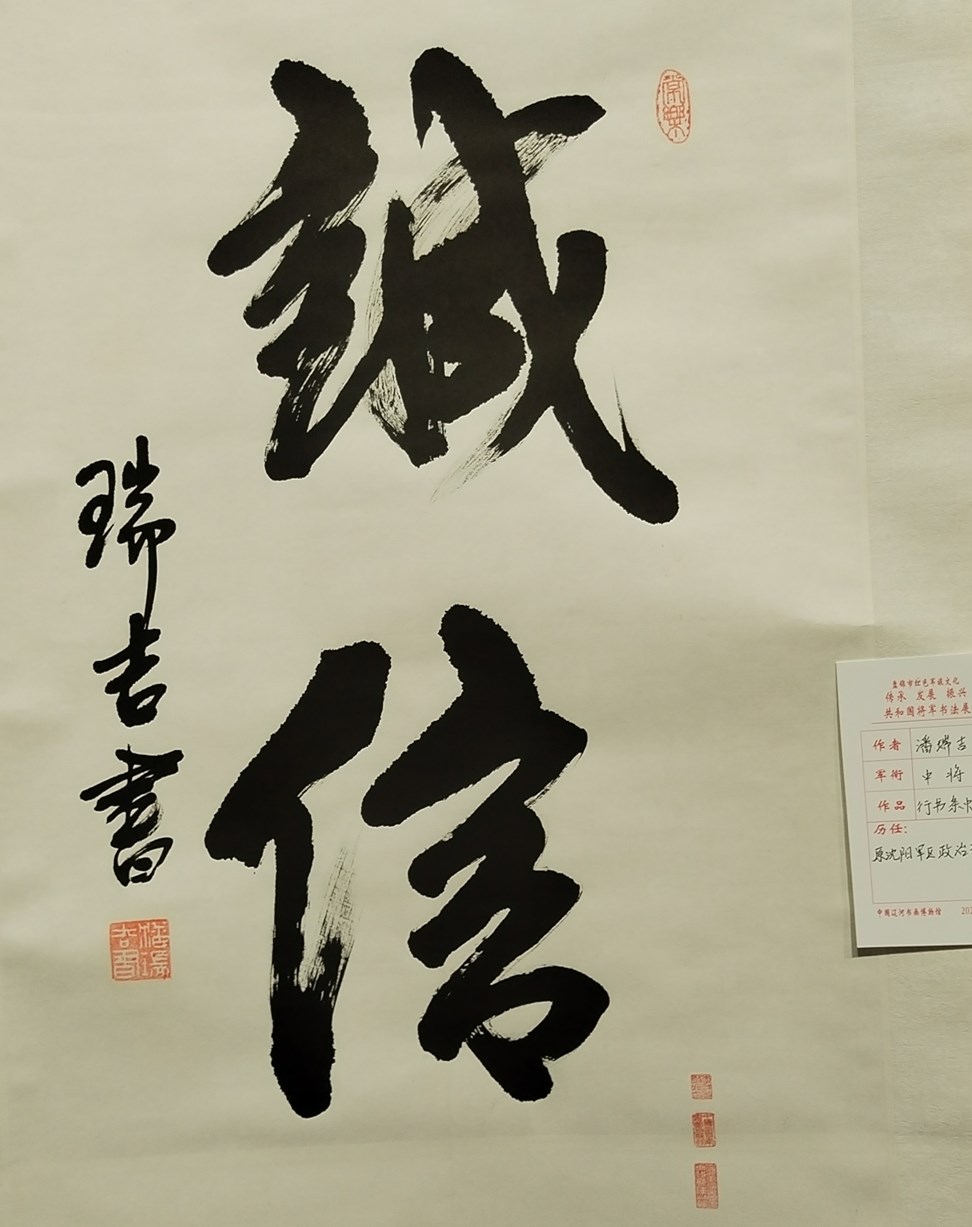 誠信
瑞吉書
常樂
盘锦市红色军旅文化
传承 发展 振兴
共和国将军书法展
作者 潘瑞吉
军衔 中将
作品 行书条
历任:
原沈阳军区政治
中国辽河书画博物馆 202